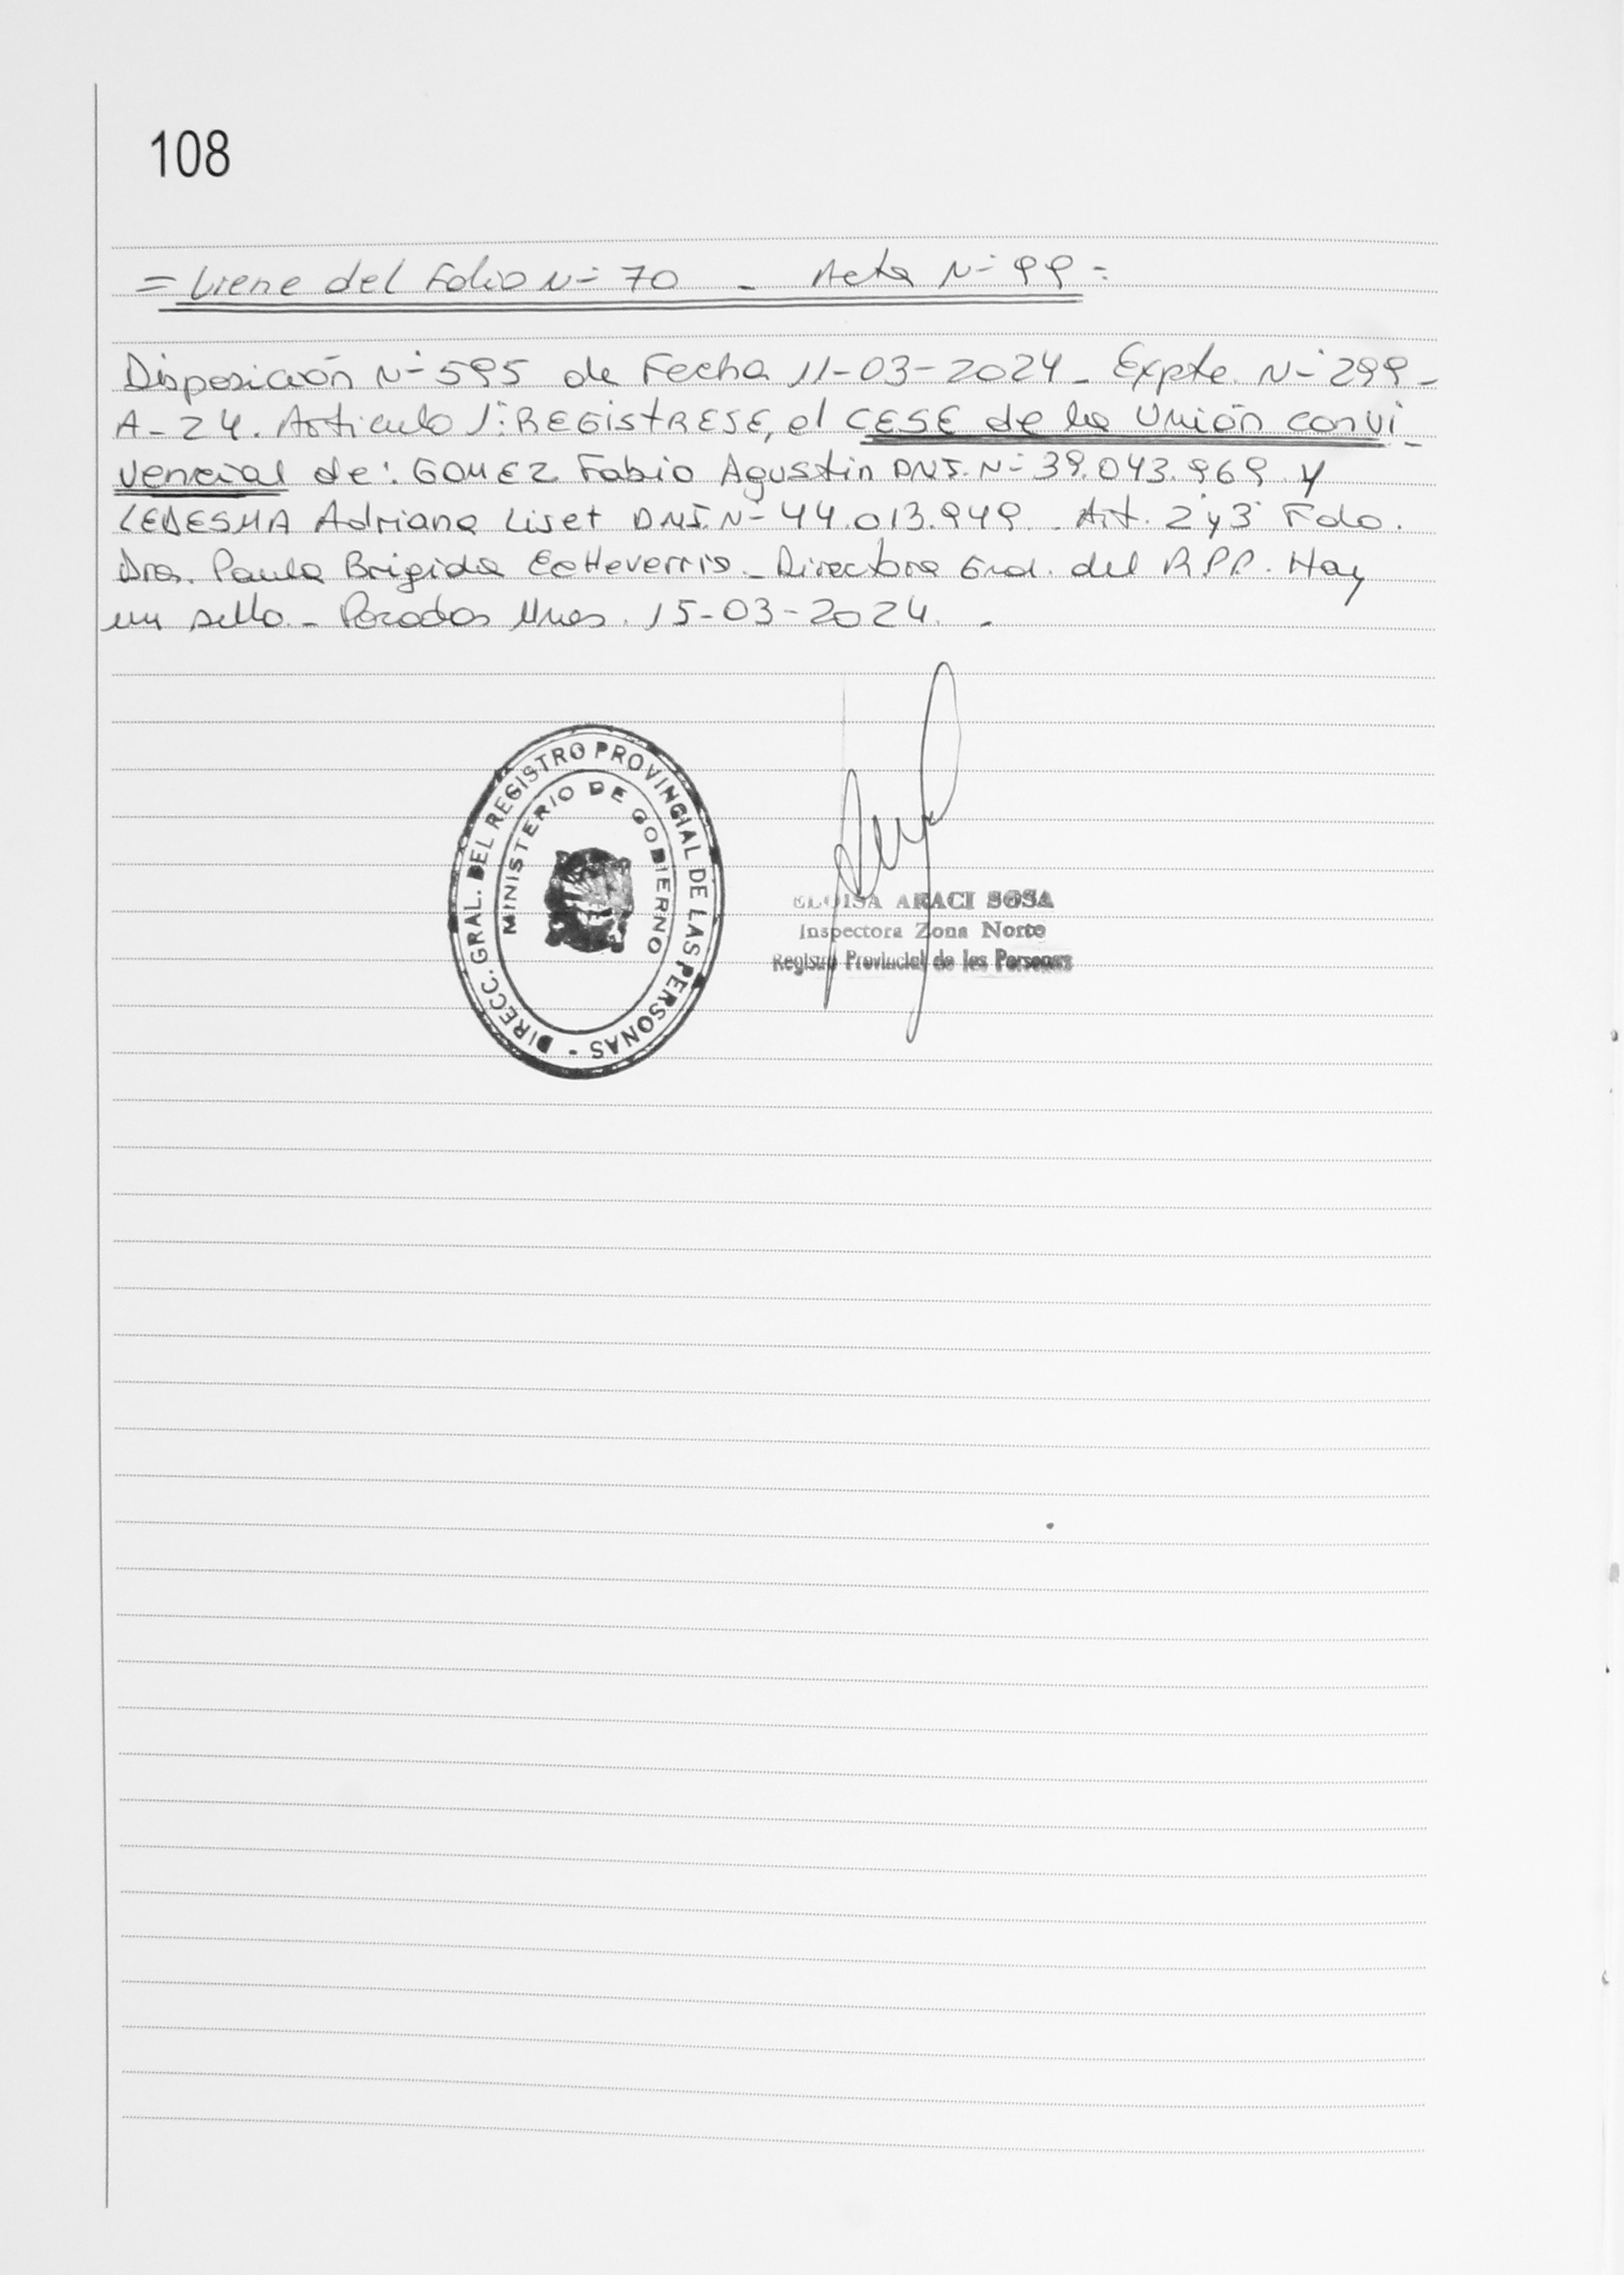 108
= Viene del Folio N= 70 - Acta N= 99 =
Disposición N= 595 de Fecha 11-03-2024 - Expte. N= 299 -
A - 24. Articulo 1°: REGISTRESE, el CESE de la Unión convi
vencial de: GOMEZ Fabio Agustin DNI. N= 39.043.969 y
LEDESMA Adriana Liset DNI. N= 44.013.949. Art. 2 y 3 Fdo.
Dra. Paula Brigida Echeverria - Directora Gral. del RPP. Hay
un sello. - Posadas Mnes. 15-03-2024. -
DIRECC. GRAL. DEL REGISTRO PROVINCIAL DE LAS PERSONAS -
MINISTERIO DE GOBIERNO
ELOISA ARACI SOSA
Inspectora Zona Norte
Registro Provincial de las Personas